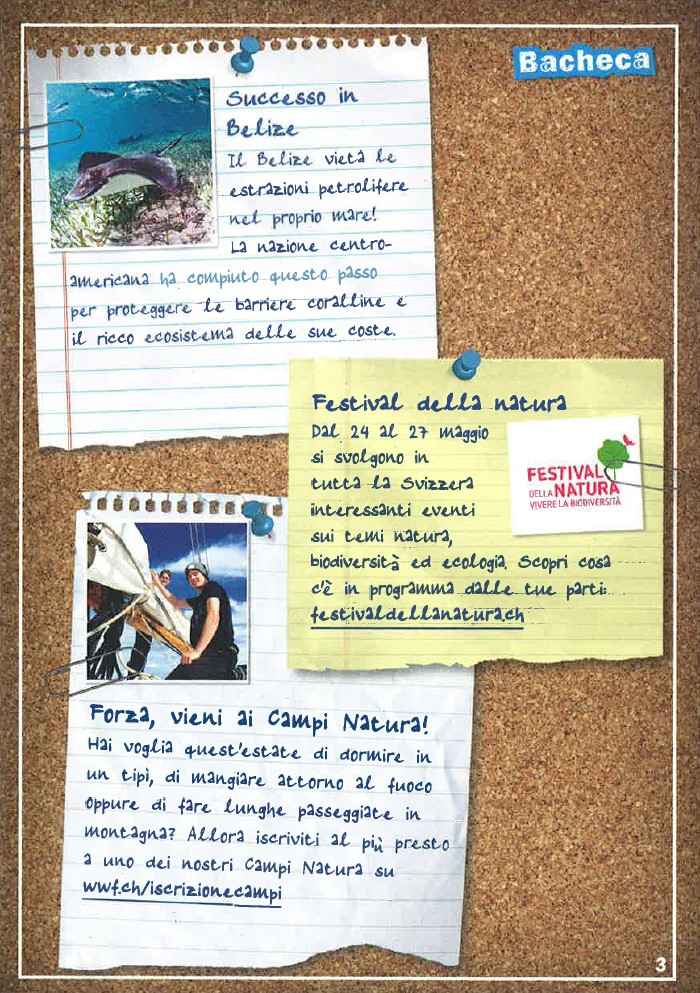 Bacheca
Successo in
Belize
Il Belize vieta le
estrazioni petrolifere
nel proprio mare!
La nazione centro-
americana ha compiuto questo passo
per proteggere le barriere coralline e
il ricco ecosistema delle sue coste.
Festival della natura
Dal 24 al 27 maggio
si svolgono in
tutta la Svizzera
interessanti eventi
sui temi natura,
biodiversità ed ecologia. Scopri cosa
c'è in programma dalle tue parti:
festivaldellanatura.ch
FESTIVAL
DELLA NATURA
VIVERE LA BIODIVERSITÀ
Forza, vieni ai Campi Natura!
Hai voglia quest'estate di dormire in
un tipì, di mangiare attorno al fuoco
oppure di fare lunghe passeggiate in
montagna? Allora iscriviti al più presto
a uno dei nostri Campi Natura su
wwf.ch/iscrizionecampi
3